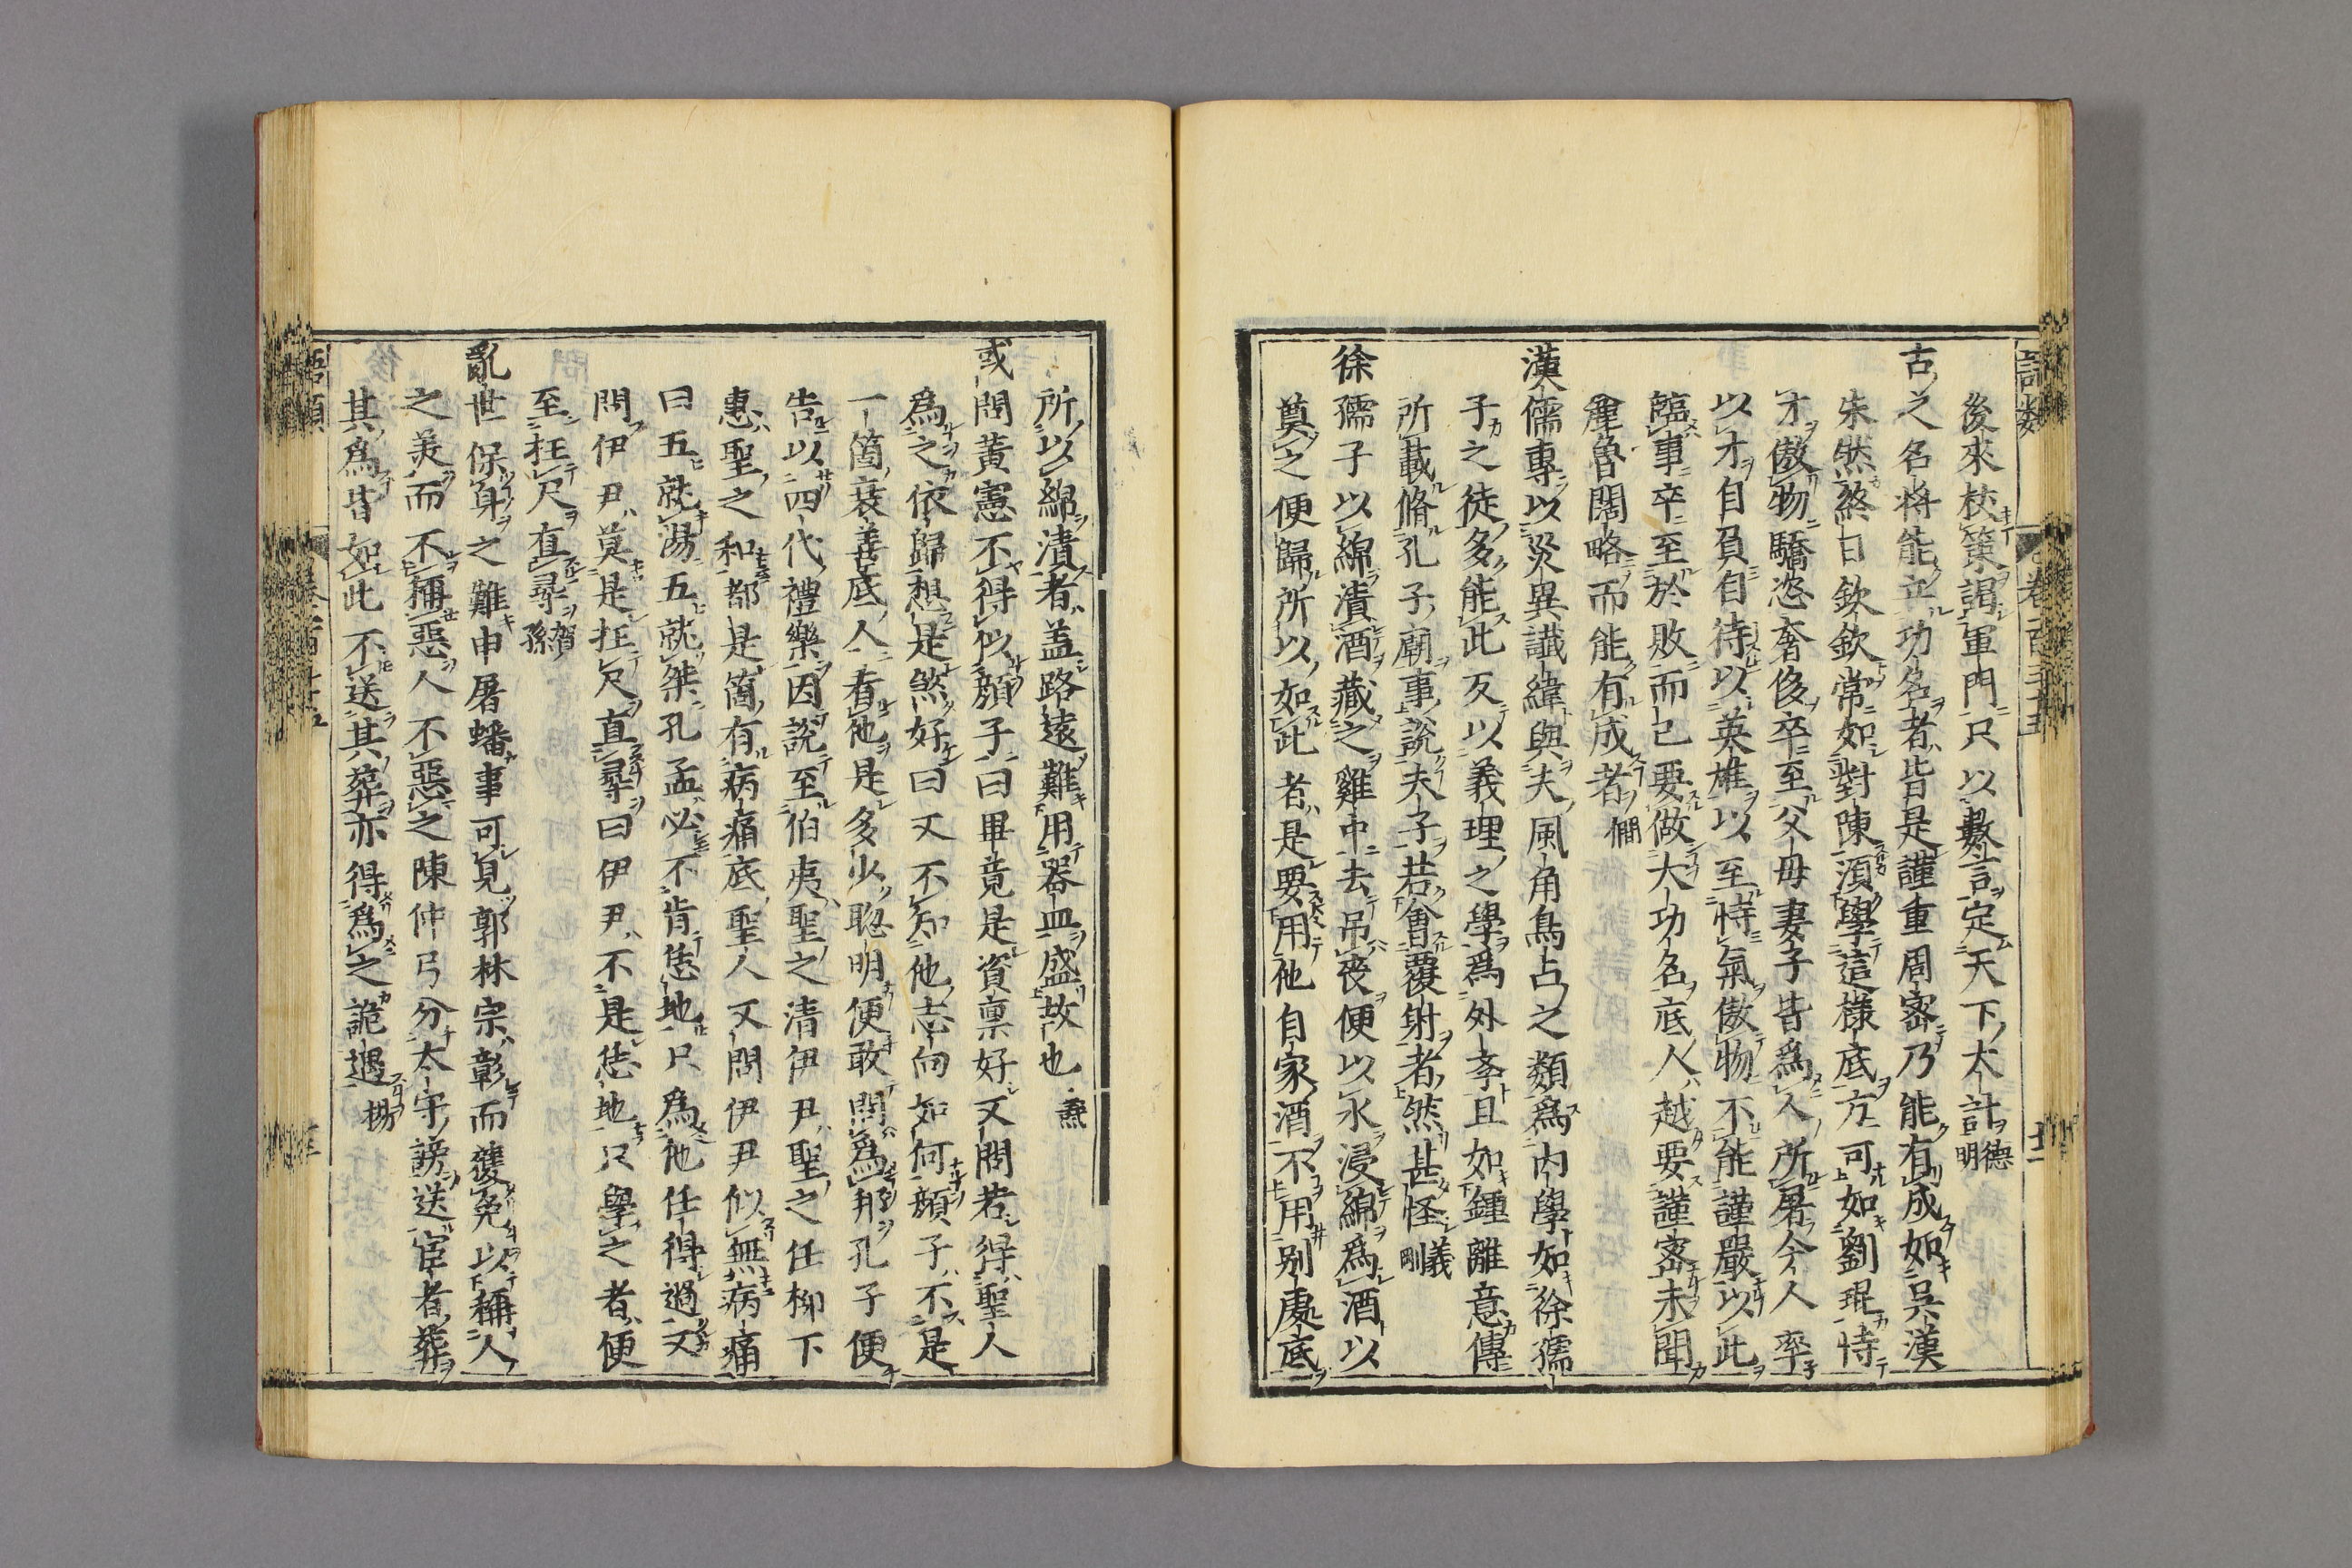 後來杖策謁軍門只以數言定天下大計德明
古之名將能立功名者皆是謹重周密乃能有成如吳漢
朱然終日欽欽常如對陳須學這樣底方可如劉琨恃
才傲物驕恣奢侈卒至父母妻子皆爲人所屠今人率
以才自負自待以英雄以至恃氣傲物不能謹嚴以此
臨事卒至於敗而已要做大功名底人越要謹密未聞
麄魯闊略而能有成者僩
漢儒專以災異讖緯與夫風角鳥占之類爲內學如徐孺
子之徒多能此反以義理之學爲外學且如鍾離意傳
所載脩孔子廟事說夫子若會覆射者然甚怪義剛
徐孺子以綿漬酒藏之雞中去吊喪便以水浸綿爲酒以
奠之便歸所以如此者是要用他自家酒不用別處底
所以綿漬者盖路遠難用器皿盛故也燾
或問黃憲不得似顏子曰畢竟是資稟好又問若得聖人
爲之依歸想是煞好曰又不知他志向如何顏子不是
一箇衰善底人看他是多少聰明便敢問爲邦孔子便
告以四代禮樂因說至伯夷聖之清伊尹聖之任柳下
惠聖之和都是箇有病痛底聖人又問伊尹似無病痛
曰五就湯五就桀孔孟必不肯恁地只爲他任得過又
問伊尹莫是枉尺直尋曰伊尹不是恁地只學之者便
至枉尺直尋賀孫
亂世保身之難申屠蟠事可見郭林宗彰而獲免以稱人
之美而不稱惡人不惡之陳仲弓分太守謗送宦者葬
其爲皆如此不送其葬亦得爲之詭遇揚
語類
卷百三十五
十二